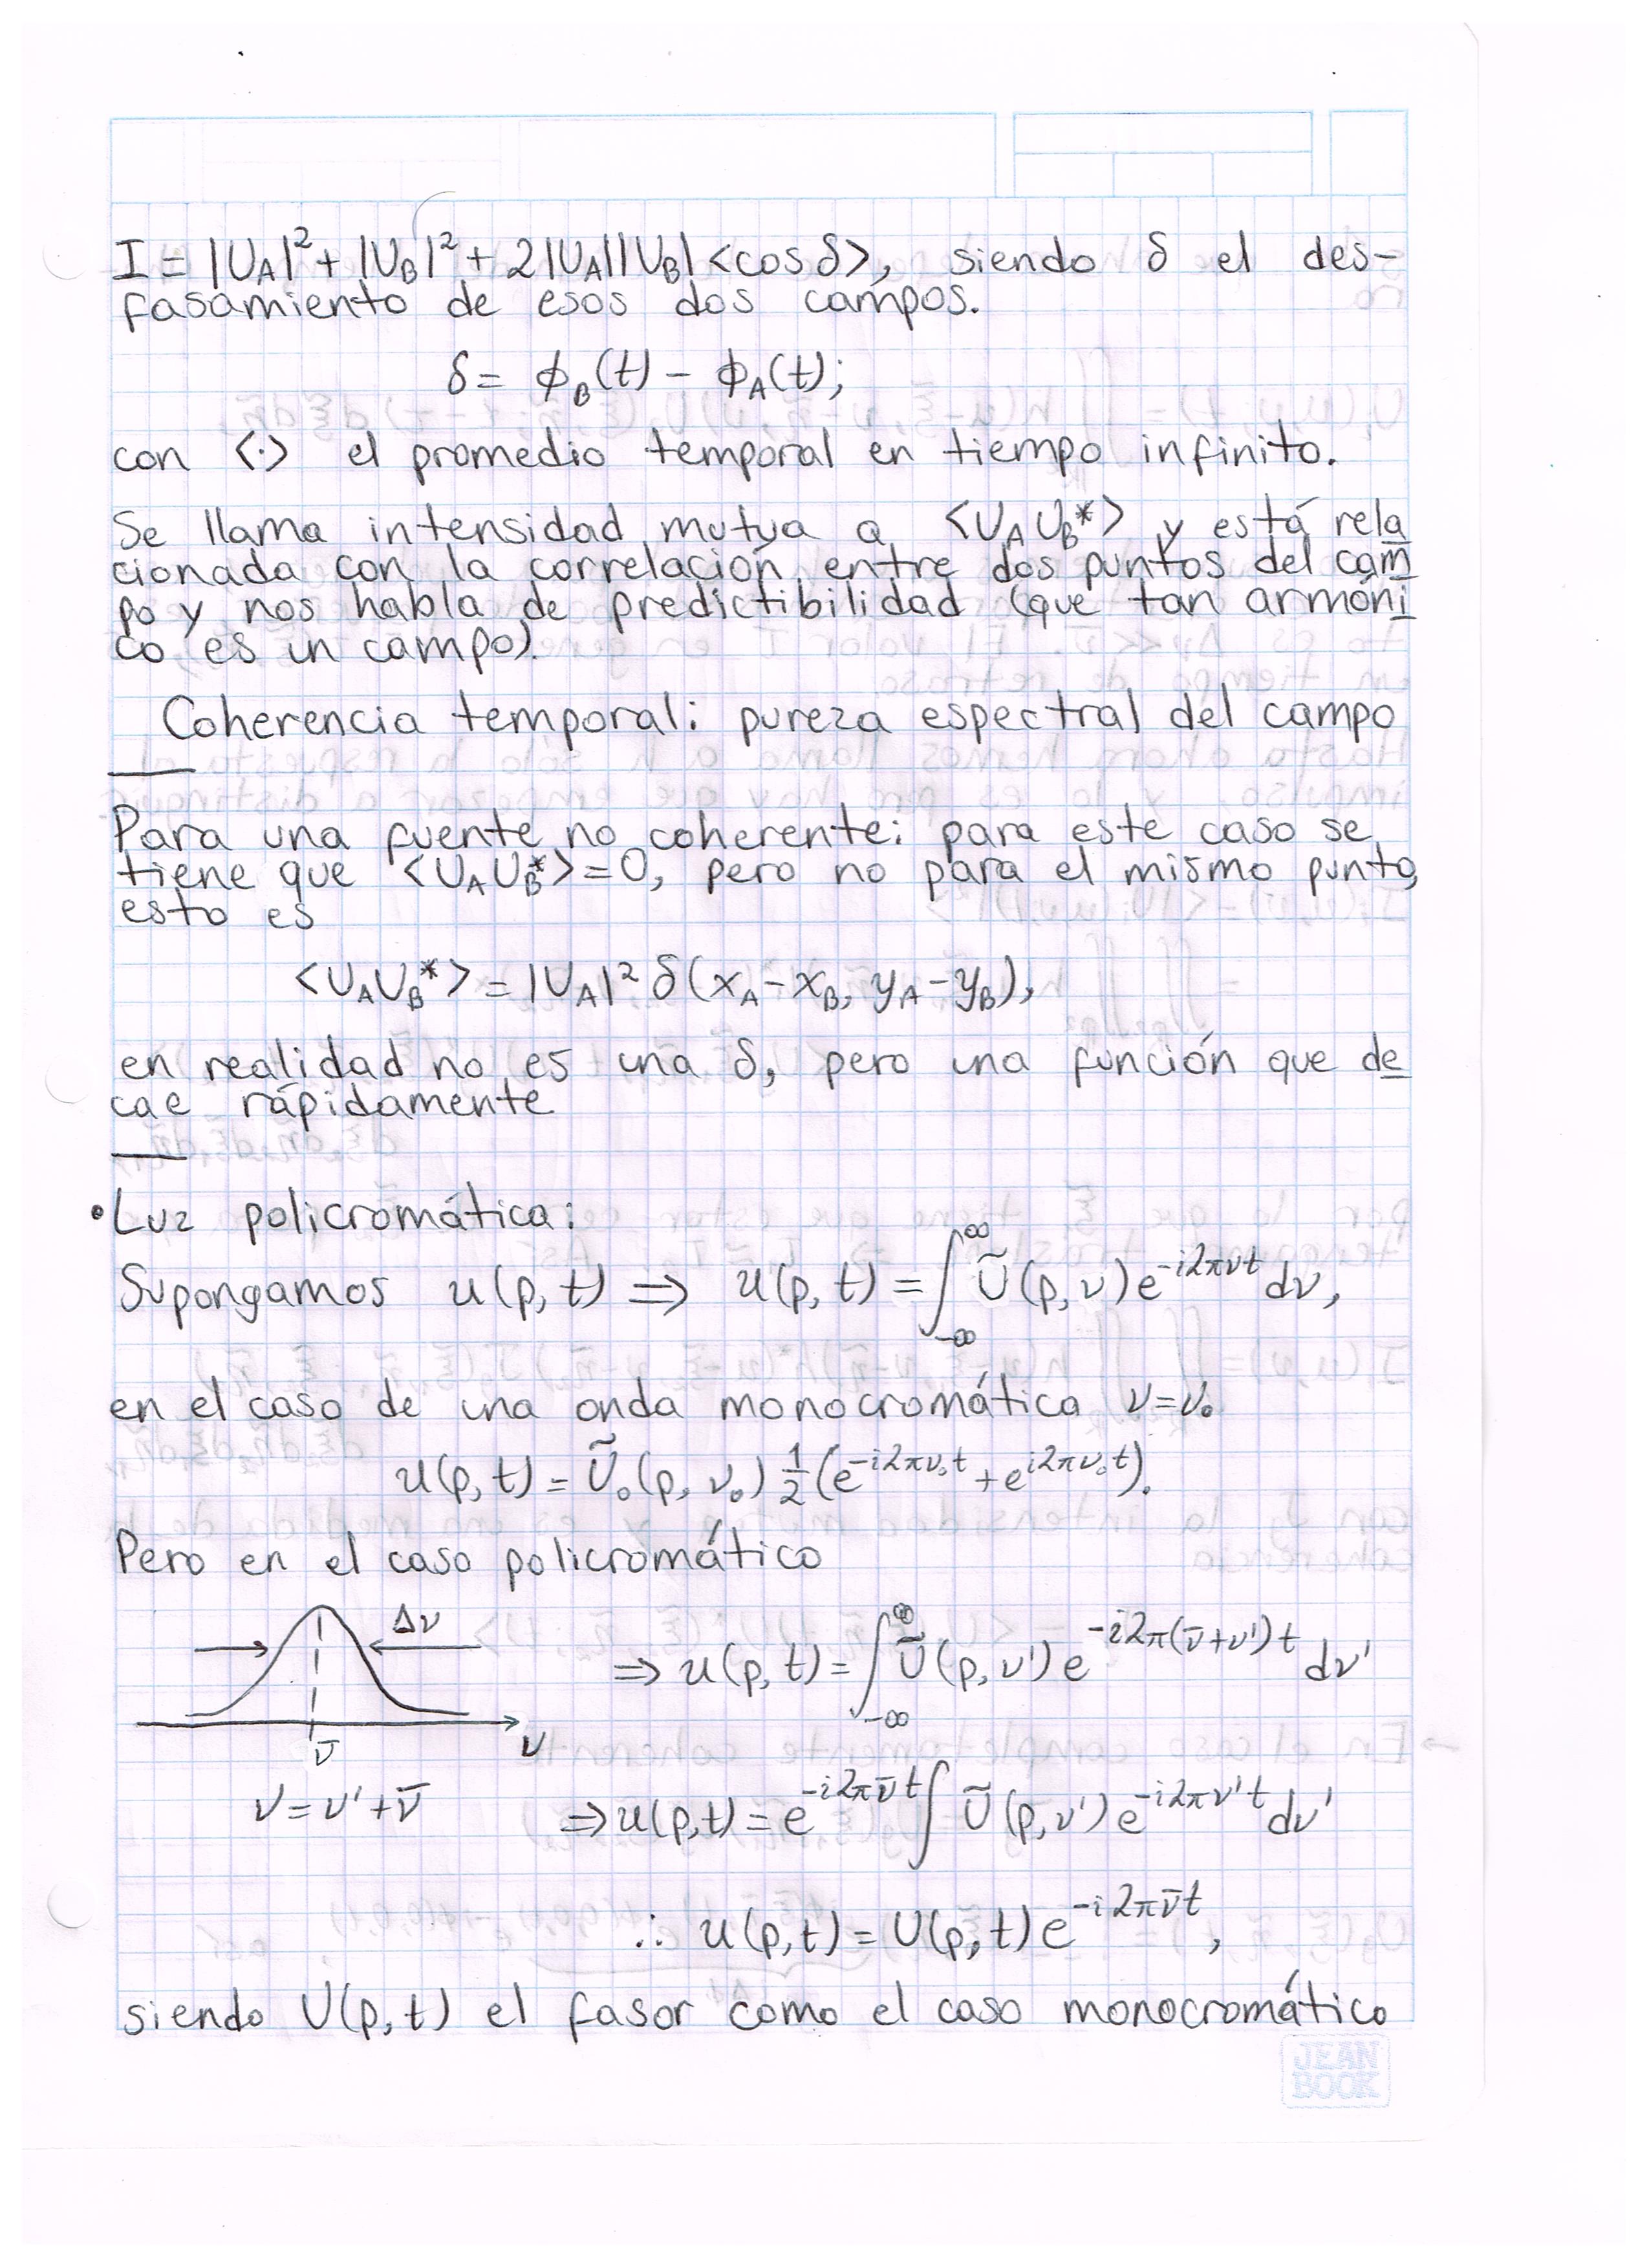 I = |U_A|² + |U_B|² + 2|U_A||U_B|<cos δ>, siendo δ el des-
fasamiento de esos dos campos.
δ = ϕ_B(t) - ϕ_A(t);
con <·> el promedio temporal en tiempo infinito.
Se llama intensidad mutua a <U_A U_B*> y está rela
cionada con la correlación entre dos puntos del cam
po y nos habla de predictibilidad (que tan armóni
co es un campo).
Coherencia temporal: pureza espectral del campo
Para una fuente no coherente: para este caso se
tiene que <U_A U_B*> = 0, pero no para el mismo punto,
esto es
<U_A U_B*> = |U_A|² δ(x_A - x_B, y_A - y_B),
en realidad no es una δ, pero una función que de
cae rápidamente
• Luz policromática:
Supongamos u(p, t) ⇒ u(p, t) = ∫_{-∞}^{∞} Ũ(p, ν) e^{-i2πνt} dν,
en el caso de una onda monocromática ν = ν₀
u(p, t) = Ũ₀(p, ν₀) 1/2 (e^{-i2πν₀t} + e^{i2πν₀t}).
Pero en el caso policromático
Δν
⇒ u(p, t) = ∫_{-∞}^{∞} Ũ(p, ν') e^{-i2π(ν̄+ν')t} dν'
ν̄ ν
ν = ν' + ν̄
⇒ u(p,t) = e^{-i2πν̄t} ∫ Ũ(p, ν') e^{-i2πν't} dν'
∴ u(p,t) = U(p, t) e^{-i2πν̄t},
siendo U(p, t) el fasor como el caso monocromático
JEAN
BOOK